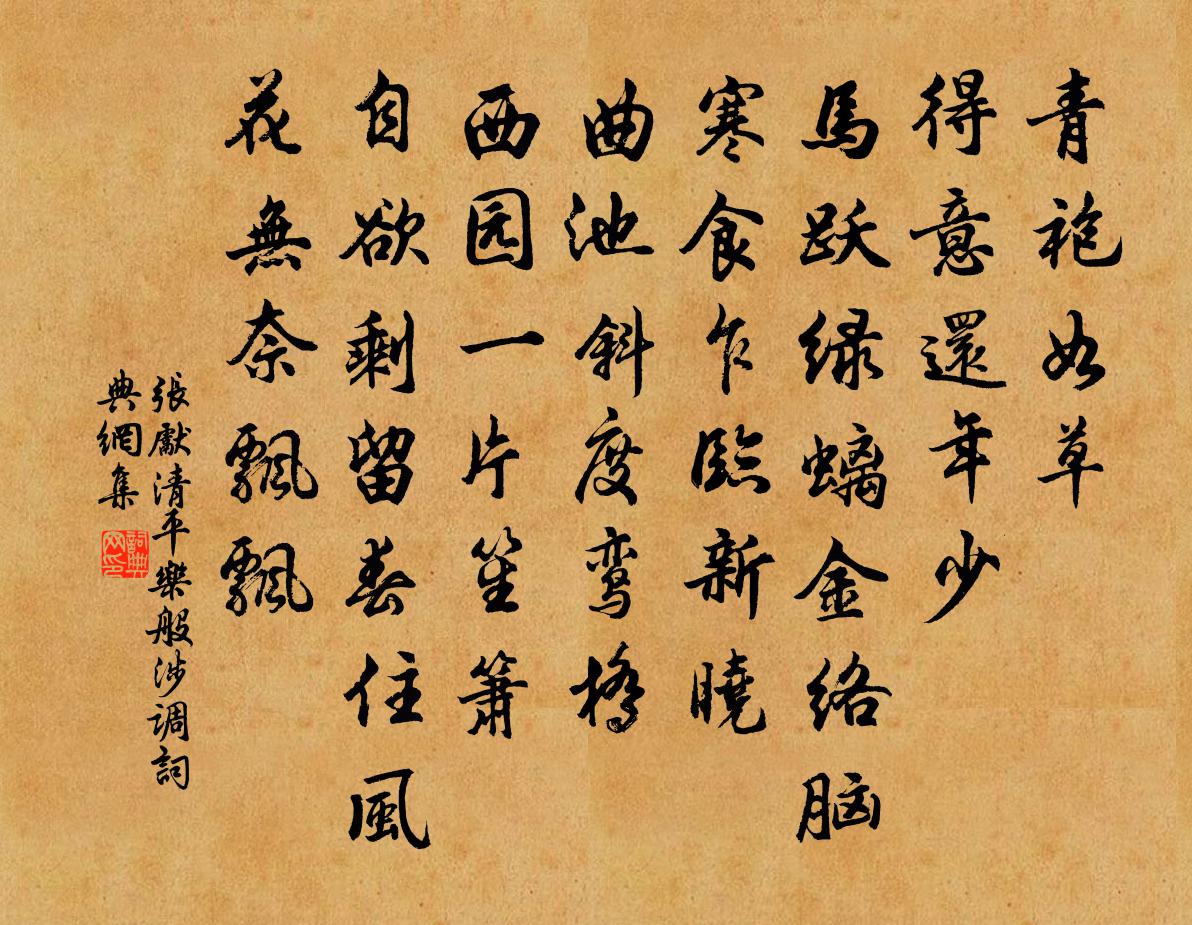 青袍如草
得意還年少
馬跃绿螭金络脑
寒食乍臨新曉
曲池斜度鸾橋
西园一片笙箫
自欲剩留春住風
花無奈飄飄
張獻清平樂般涉调詞
典網集
詞典网印